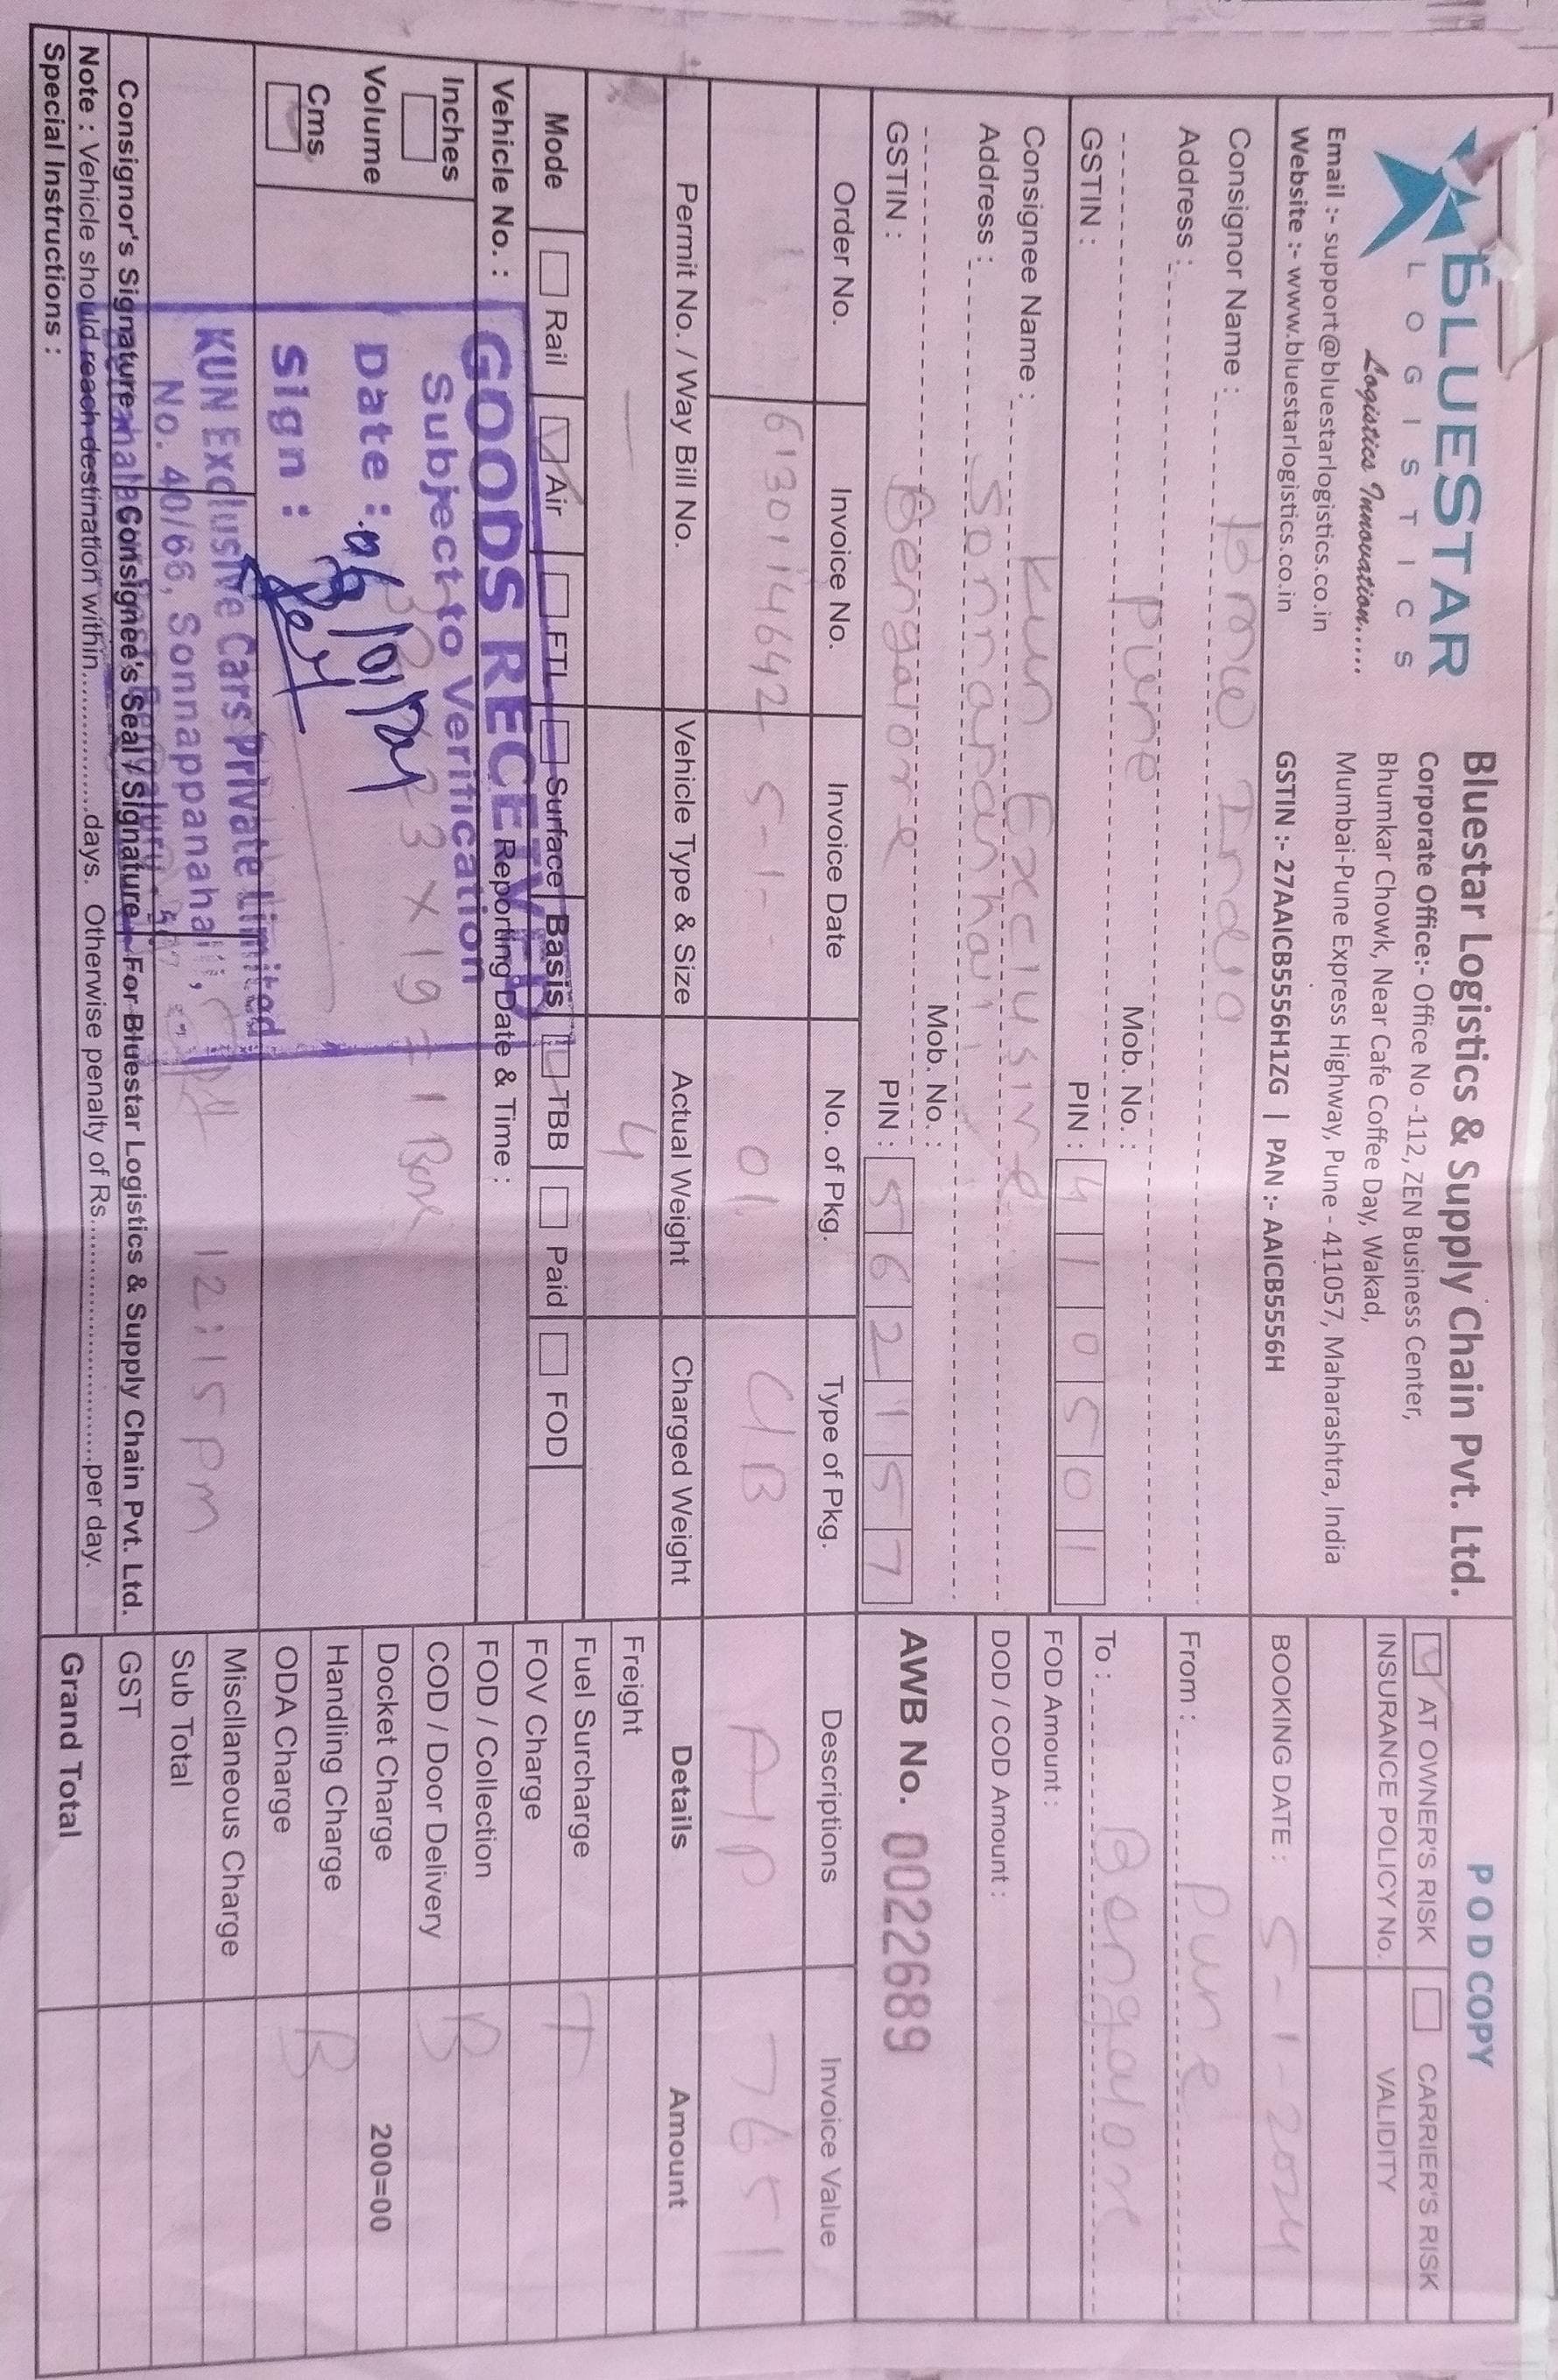 BLUESTAR
LOGISTICS
Logistics Innovation.....
Email :- support@bluestarlogistics.co.in
Website :- www.bluestarlogistics.co.in
Bluestar Logistics & Supply Chain Pvt. Ltd.
Corporate Office:- Office No -112, ZEN Business Center,
Bhumkar Chowk, Near Cafe Coffee Day, Wakad,
Mumbai-Pune Express Highway, Pune - 411057, Maharashtra, India
GSTIN :- 27AAICB5556H1ZG | PAN :- AAICB5556H
POD COPY
AT OWNER'S RISK CARRIER'S RISK
INSURANCE POLICY No. VALIDITY
BOOKING DATE : 5-1-2024
Consignor Name : BMW India
Address :
Pune Mob. No. :
GSTIN : PIN : 410501
From : Pune
To : Bengalore
FOD Amount :
DOD / COD Amount :
Consignee Name : Kun Exclusive
Address : Sonnapanhalli,
Mob. No. :
GSTIN : Bengalore PIN : 562157
AWB No. 0022689
Order No. Invoice No. Invoice Date No. of Pkg. Type of Pkg. Descriptions Invoice Value
6130114642 5-1-- 01 C/B A/P 7651
Permit No. / Way Bill No. Vehicle Type & Size Actual Weight Charged Weight Details Amount
— 4
Freight
Fuel Surcharge T
FOV Charge
FOD / Collection B
COD / Door Delivery
Docket Charge 200=00
Handling Charge B
ODA Charge
Miscllaneous Charge
Sub Total
GST
Grand Total
Mode Rail Air FTL Surface Basis TBB Paid FOD
Vehicle No. : Reporting Date & Time :
Inches
Volume
Cms
GOODS RECEIVED
Subject to Verification
23 X 19 = 1 Box
Date : 06/01/24
Sign :
KUN Exclusive Cars Private Limited
No. 40/66, Sonnappanahalli,
Bengaluru -
12:15 PM
Consignor's Signature Consignee's Seal / Signature For Bluestar Logistics & Supply Chain Pvt. Ltd.
Note : Vehicle should reach destination within.................days. Otherwise penalty of Rs.............................per day.
Special Instructions :